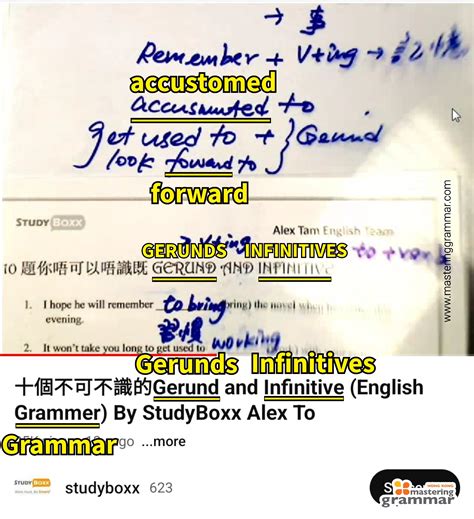 → 事
Remember + Ving → 記憶
accustomed
accusmnted to
get used to + } Gerund
look foward to
forward
www.mastergrammar.com
STUDY BOXX
Alex Tam English Team
GERUNDS INFINITIVES
10 題你唔可以唔識既 GERUND AND INFINITIVE
1. I hope he will remember to bring (bring) the novel when
evening.
習慣 working
2. It won't take you long to get used to
Gerunds Infinitives
十個不可不識的Gerund and Infinitive (English
Grammer) By StudyBoxx Alex To
Grammar ago ...more
STUDY BOXX
studyboxx 623
HONG KONG
mastering
grammar